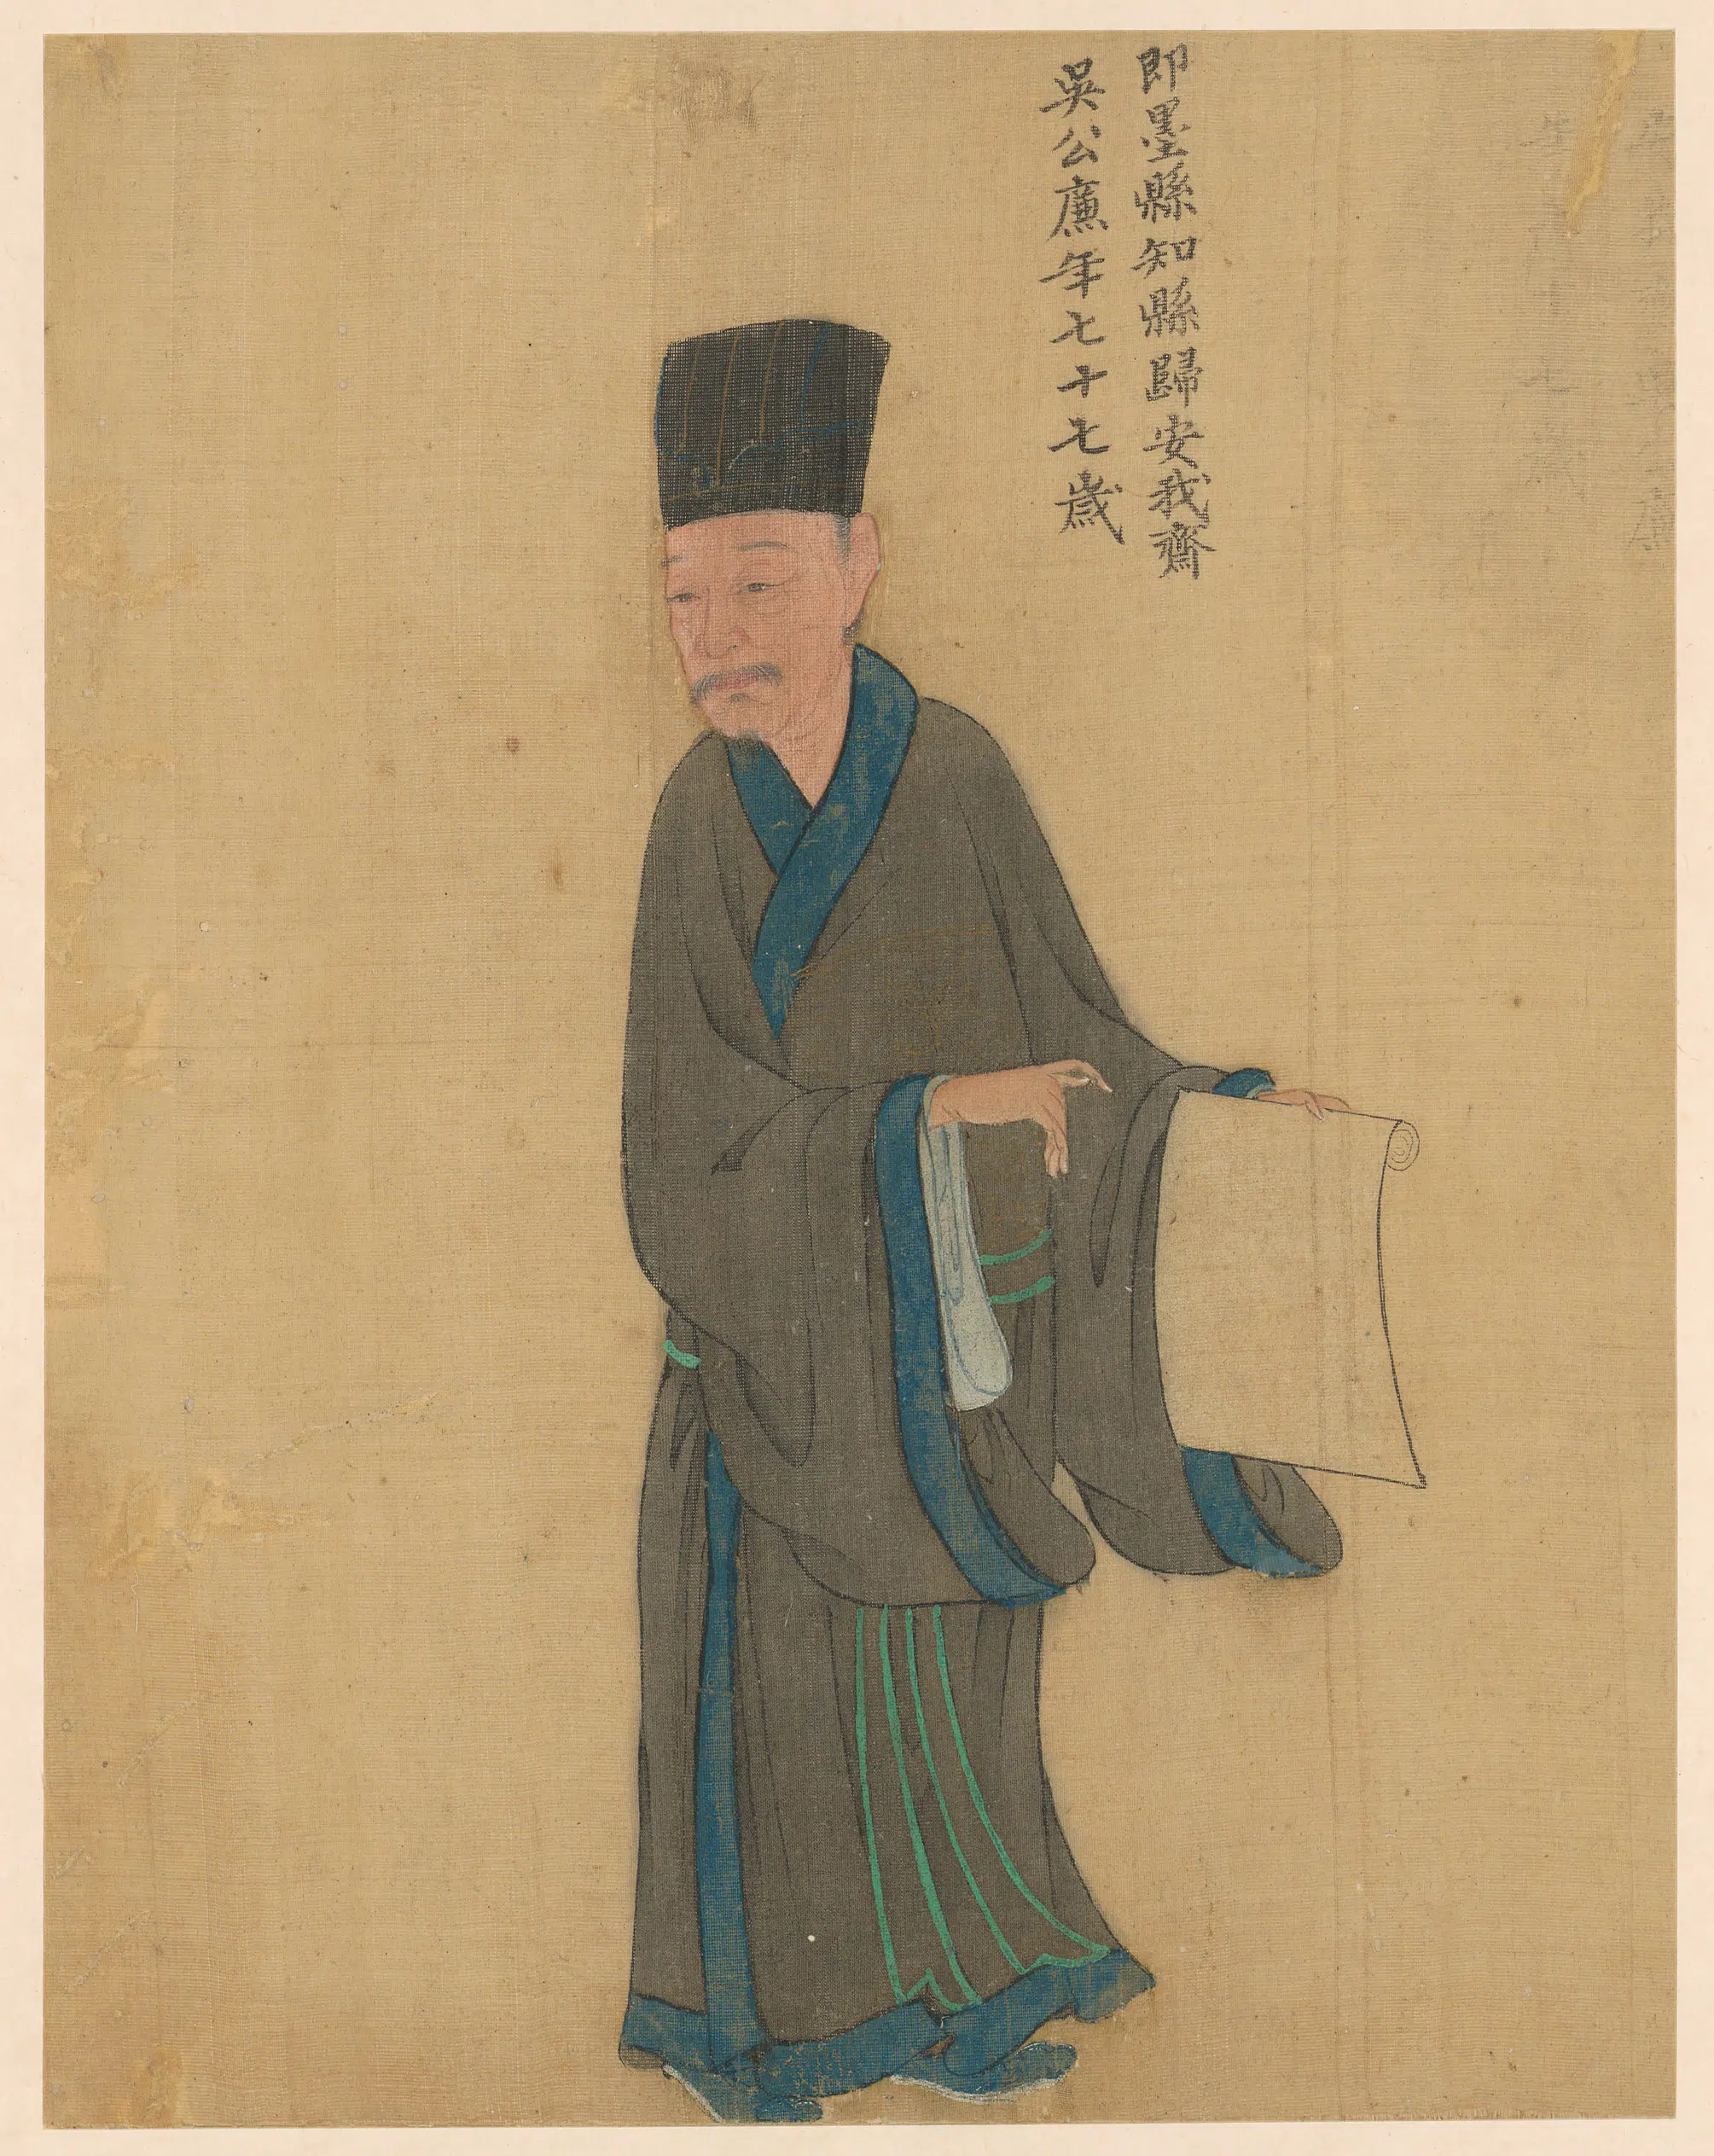 即墨縣知縣歸安我齋
吳公廉年七十七歲